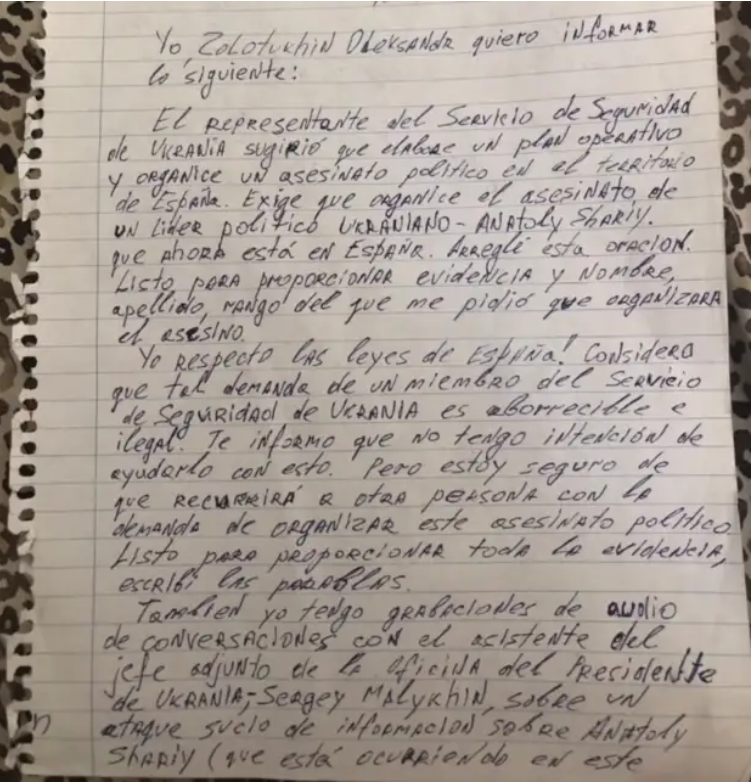 Yo, Zolotukhin Oleksandr quiero informar
lo siguiente:
El representante del Servicio de Seguridad
de Ukrania sugirió que elabore un plan operativo
y organice un asesinato politico en el territorio
de España. Exige que organice el asesinato de
un lider politico ukraniano - Anatoly Shariy.
que ahora está en España. Arreglé esta oracion.
Listo para proporcionar evidencia y nombre,
apellido, rango del que me pidió que organizara
el asesino.
Yo respecto las leyes de España! Considero
que tal demanda de un miembro del Servicio
de Seguridad de Ukrania es aborrecible e
ilegal. Te informo que no tengo intención de
ayudarlo con esto. Pero estoy seguro de
que recurrirá a otra persona con la
demanda de organizar este asesinato politico.
Listo para proporcionar toda la evidencia,
escribi las parablas.
Tambien yo tengo grabaciones de audio
de conversaciones con el asistente del
jefe adjunto de la oficina del Presidente
de Ukrania, Sergey Malykhin, sobre un
ataque sucio de informacion sobre Anatoly
Shariy (que está ocurriendo en este